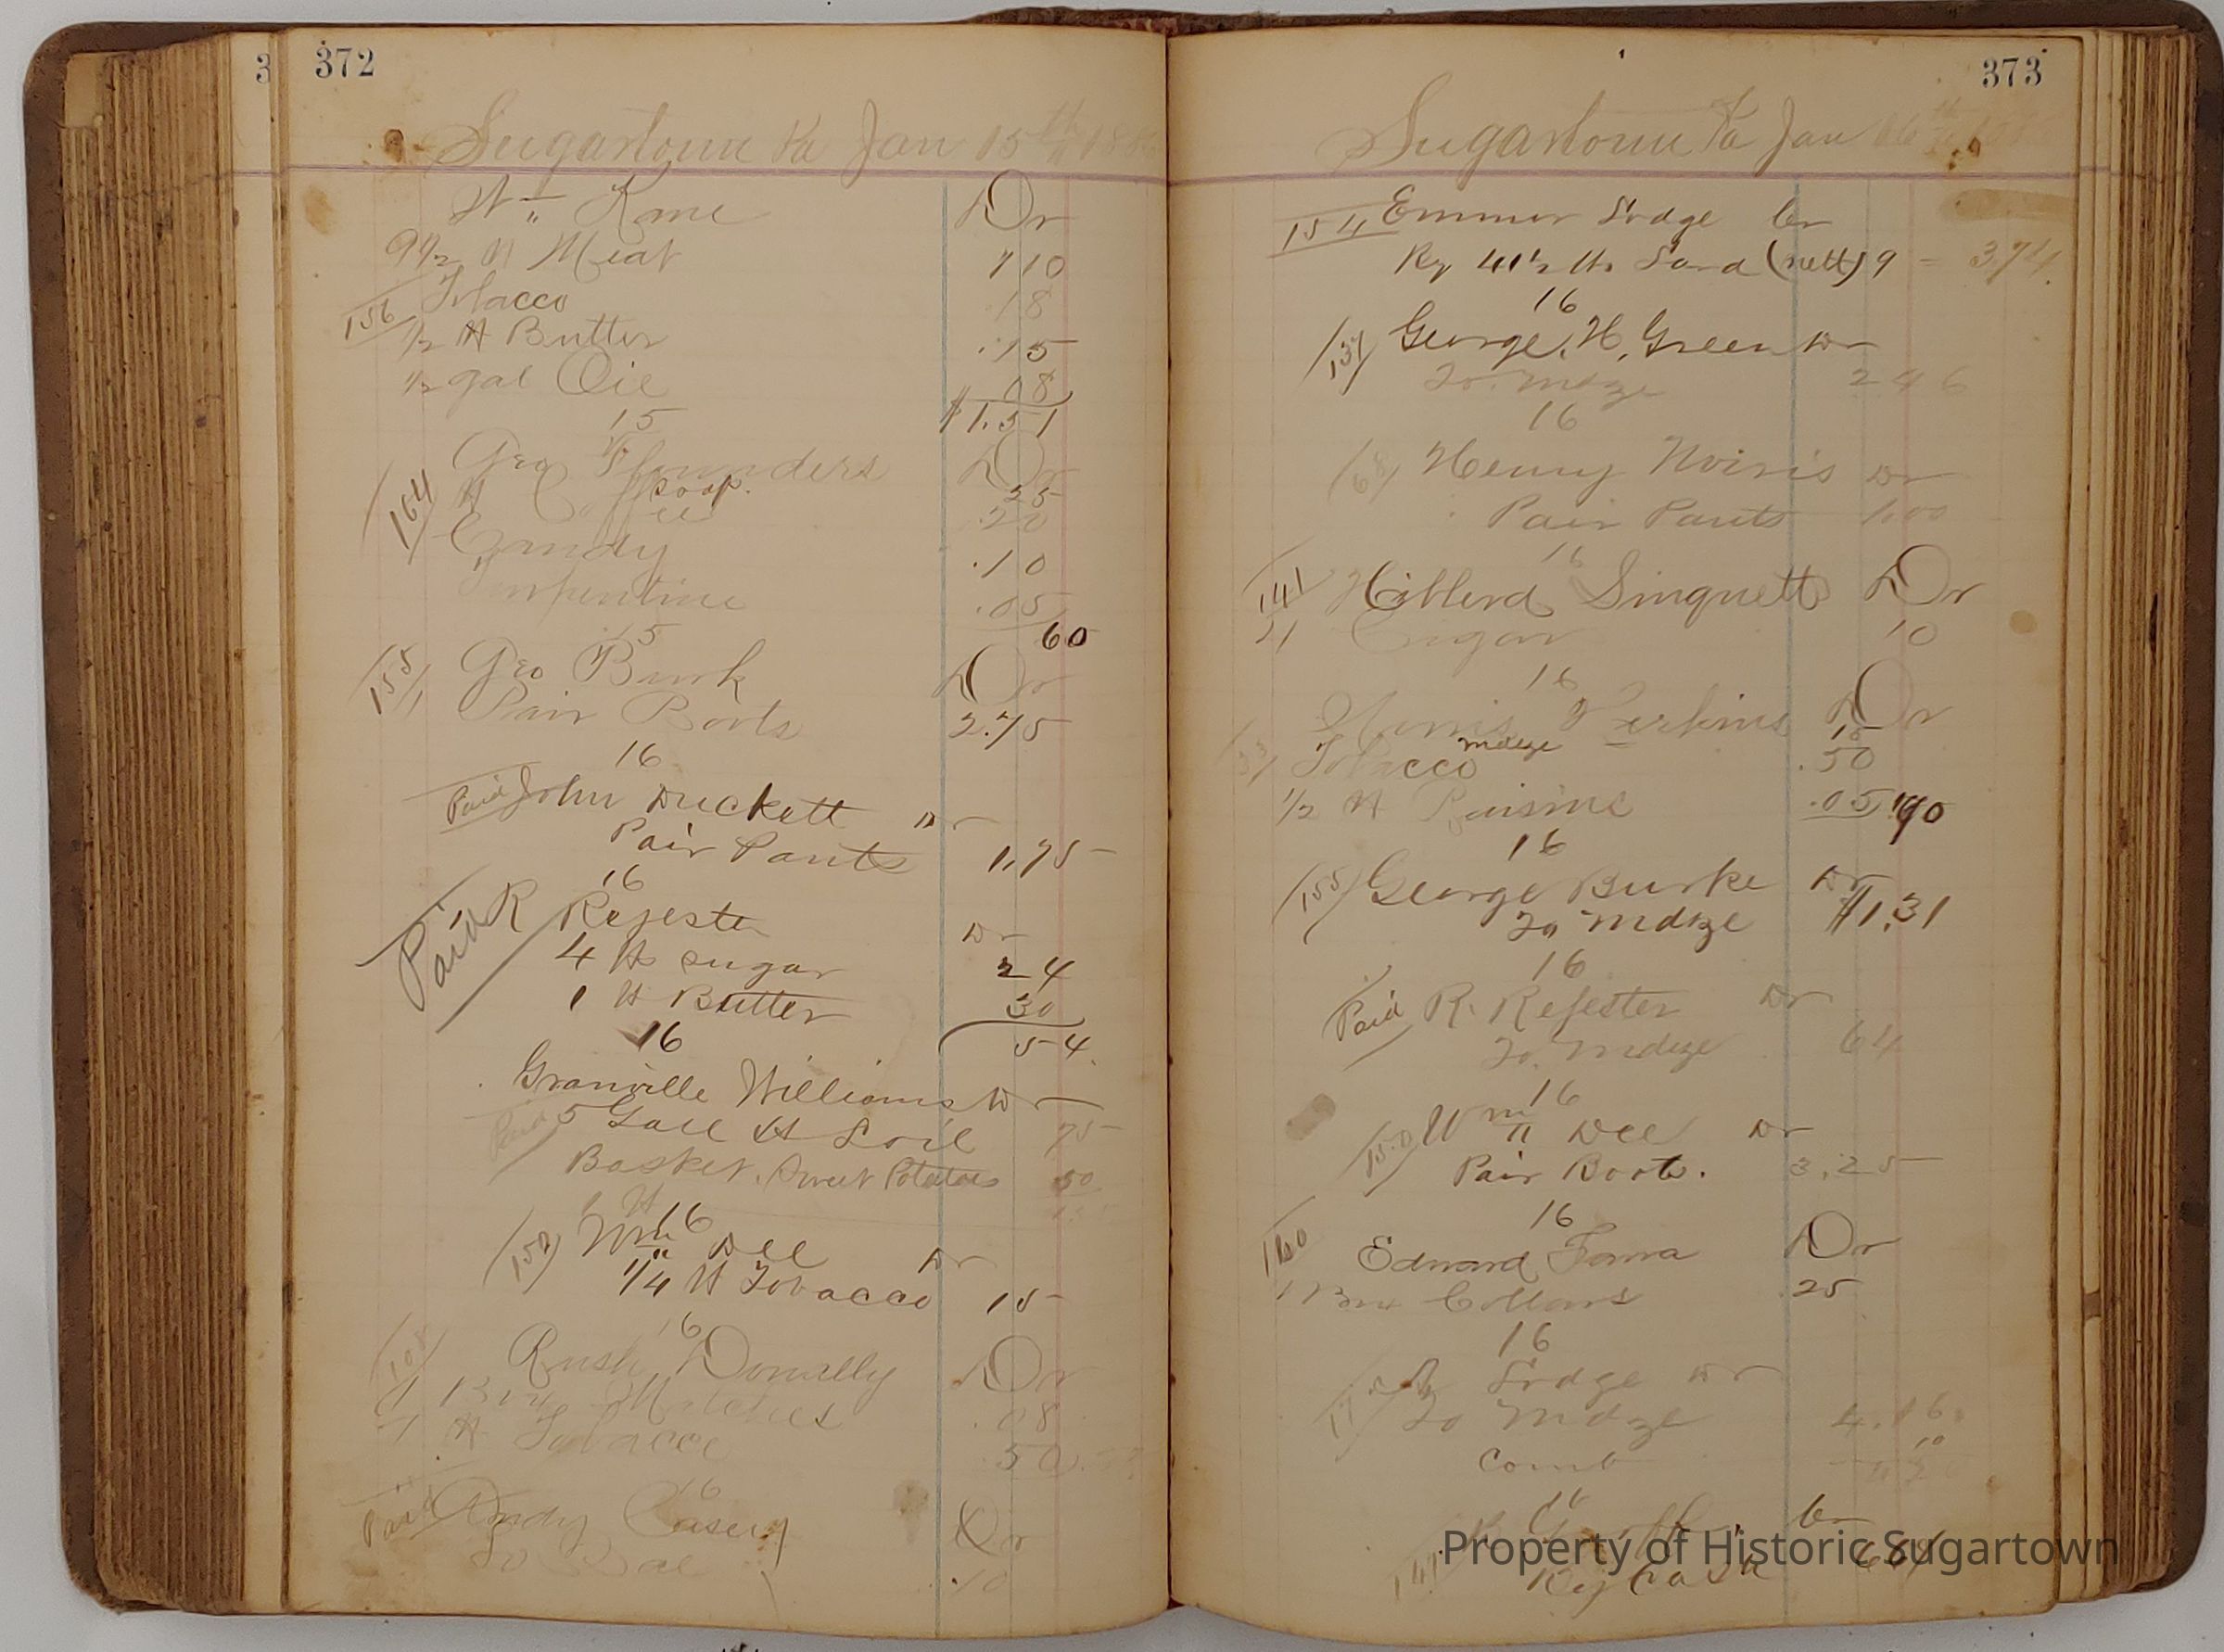 3
372
Sugartown Pa Jan 15th 188
Wm Kane Dr
9 1/2 # Meat 1 10
156 Tobacco .18
1/2 # Butter .15
1/2 gal Oil 08
$1.51
15
Geo Flounders Dr
Soap. 25
164 # Coffee .20
Candy .10
Turpentine .05
60
15
155 Geo Burk Dr
1 Pair Boots 2.75
16
Paid John Duckett Dr
Pair Pants 1.75
16
Paid R Rejester Dr
4 # sugar 24
1 # Butter 30
54
16
Granville Williams Dr
Paid 5 Gall H L oil 75
Basket. Sweet Potatoes 50
16
150 Wm Dee Dr
1/4 # Tobacco 15
16
108 Rush Donally Dr
1 Box Matches .08
1 # Tobacco 50
16
Paid Andy Casey Dr
To Bal .10
373
Sugartown Pa Jan 16th
154 Emmor Lodge Cr
By 41 1/2 lbs Lard (nett) 9 = 3.74
16
137 George. H. Green Dr
To. mdze 2 46
16
68 Henry Noiris Dr
Pair Pants 1.00
16
141 Hillerd Singuett Dr
21 Cigar 10
16
Harris Perkins Dr
mdze 15
Tobacco .50
1/2 # Raisins .05 70
16
155 George Burke Dr
To mdze $1.31
16
Paid R. Rejester Dr
To. mdze 64
16
150 Wm Dee Dr
Pair Boots. 3.25
16
160 Edward Farra Dr
1 Box Collars .25
16
Lodge Dr
To mdze 4.16
Comb 10
16
Cr
147 By Cash
Property of Historic Sugartown